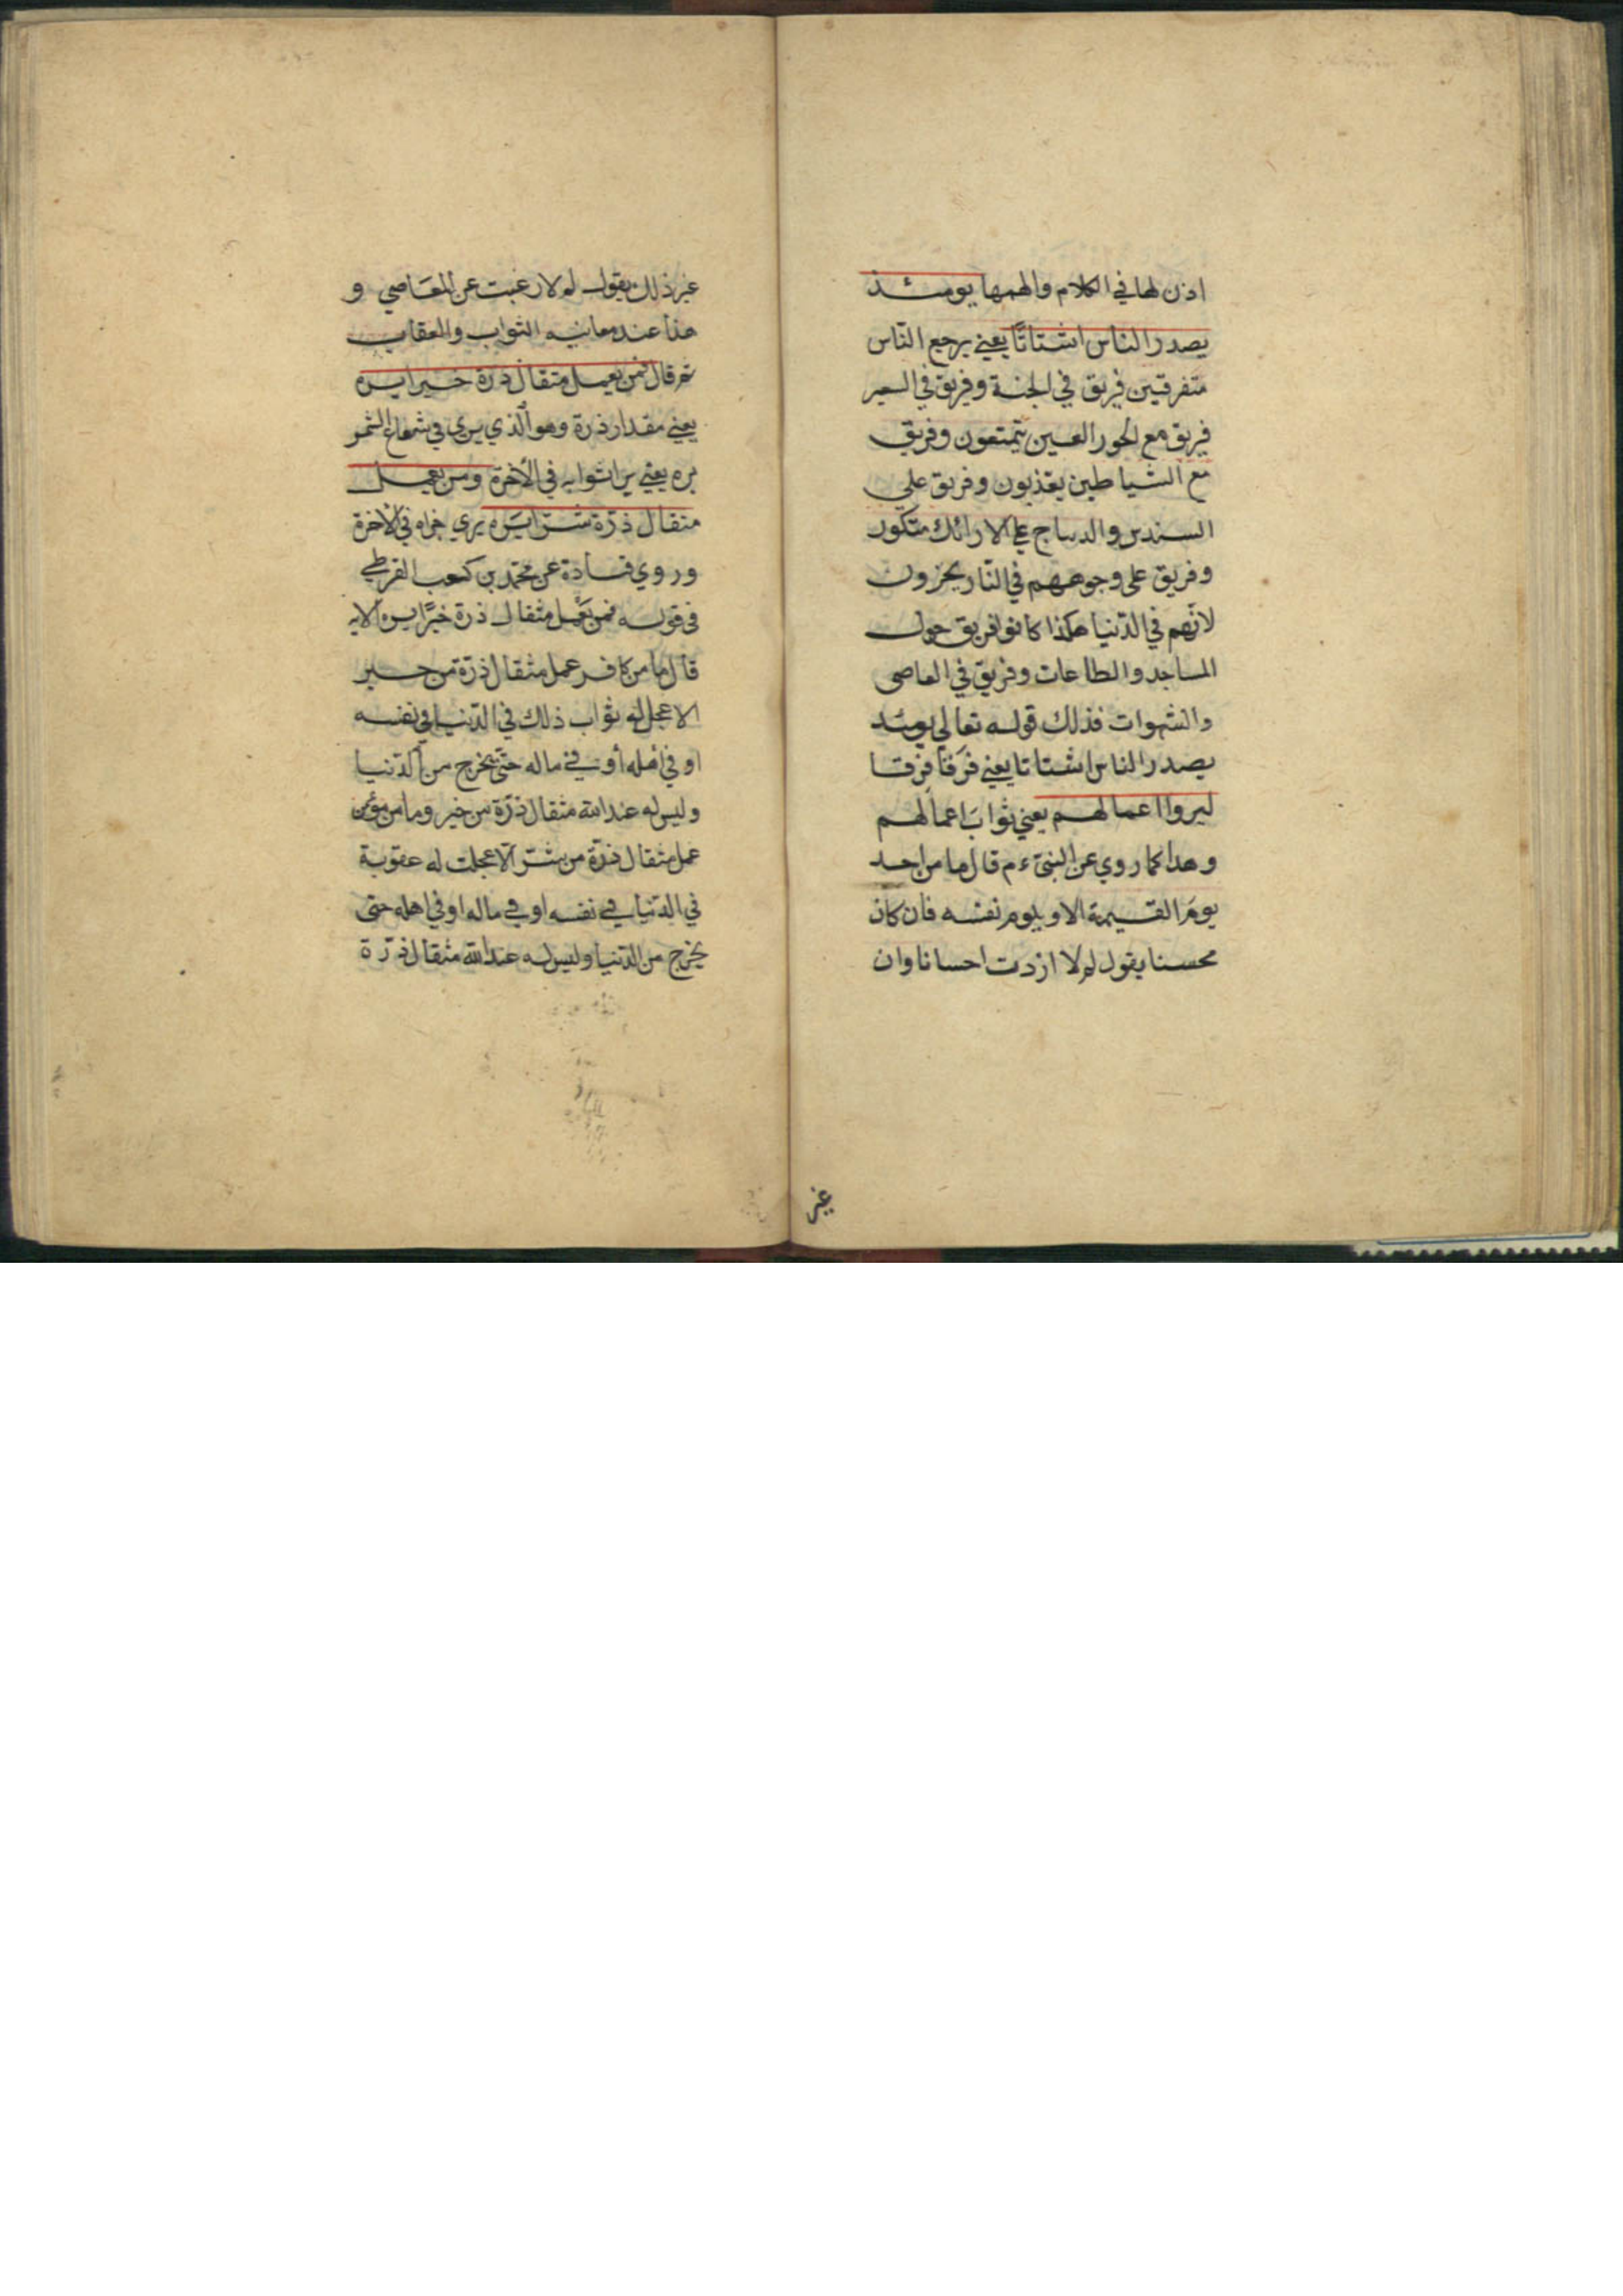 اذن لها في الكلام والهمها يومئذ
يصدر الناس اشتاتًا يعني يرجع النّاس
متفرقين فريق في الجنة وفريق في السعير
فريق مع الحور العين يتمتعون وفريق
مع الشياطين يعذبون وفريق علي
السندس والديباج علي الارائك متكون
وفريق علي وجوههم في النّار يجزون
لانّهم في الدّنيا هكذا كانوا فريق حول
المساجد والطاعات وفريق في المعاصي
والشهوات فذلك قوله تعالي يومئذ
يصدر الناس اشتاتا يعني فرَقا فرَقا
ليروا اعمالهم يعني ثوابَ اعمالهم
وهذا كما روي عن النبيّ ءم قال ما من احد
يومَ القيمة الا ويلوم نفسه فان كان
محسنا يقول لم لا ازددت احسانا وان
غير
غير ذلك يقول لم لا رغبت عن المعَاصي و
هذا عند معاينه الثواب والعقاب
ثم قال فمن يعمل مثقال ذرة خيرا يره
يعني مقدار ذرة وهو الّذي يري في شعاع الشمس
يره يعني يرا ثوابه في الأخرة ومن يعمل
مثقال ذرّة شرّا يرَه يري جزاه في الأخرة
وروي قتادة عن محمّد بن كعب القرظي
في قوله فمن يعَمل مثقال ذرة خيرًا يره الايه
قال ما من كافر عمل مثقال ذرّة من خير
الا عجل له ثواب ذلك في الدّنيا في نفسه
او في أهله أو في ماله حتّي يخرج من الدّنيا
وليس له عند الله مثقال ذرّة من خير وما من مؤمن
عمل مثقال ذرّة من شرّ الّا عجلت له عقوبة
في الدّنيا في نفسه او في ماله او في اهله حتي
يخرج من الدّنيا وليس له عند الله مثقال ذرّة